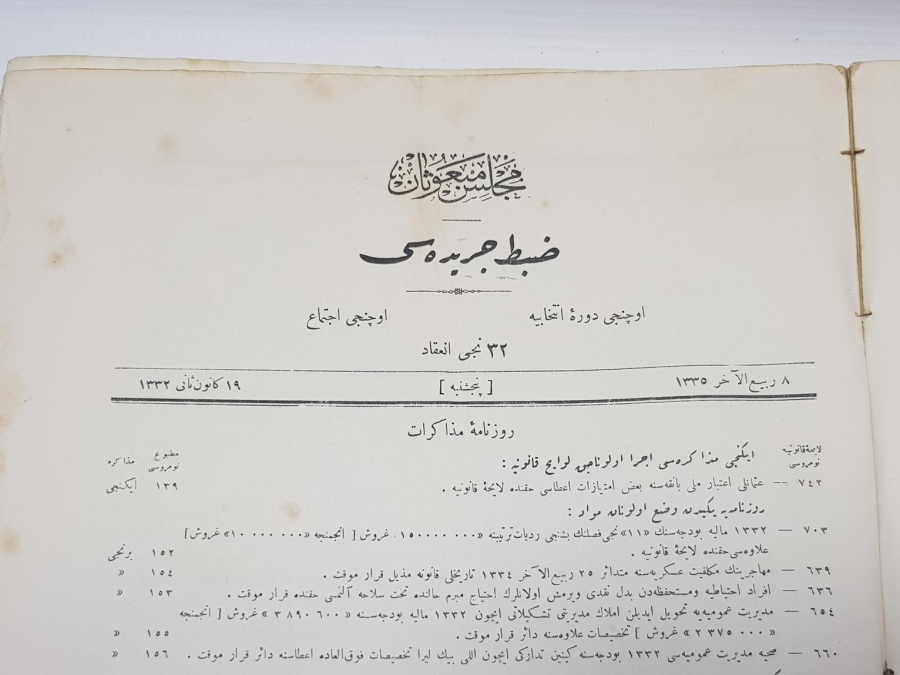 مجلس مبعوثان
ضبط جريده سی
اوچنجی دورۀ انتخابیه اوچنجی اجتماع
٣٢ نجی انعقاد
٨ ربیع الآخر ١٣٣٥ [ پنجشنبه ] ١٩ كانون ثانی ١٣٣٢
روزنامۀ مذاكرات
لایحۀ قانونیه نومروسی
مطبوع نومروسی مذاكره
ایكنجی مذاكره سی اجرا اولوناجق لوایح قانونیه :
٧٤٢ — عثمانلی اعتبار ملی بانقه سنه بعض امتیازات اعطاسی حقنده لایحۀ قانونیه . ١٣٩ ایكنجی
روزنامه یه یكیدن وضع اولونان مواد :
٧٠٣ — ١٣٣٢ مالیه بودجه سنك «١١» نجی فصلنك بشنجی ردیات ترتیبنه «١٥٠٠٠٠٠٠» غروش [ انجمنجه «١٠٠٠٠٠٠٠» غروش ]
علاوه سی حقنده لایحۀ قانونیه . ١٥٢ برنجی
٦٣٩ — مهاجرینك مكلفیت عسكریه سنه متدائر ٢٥ ربیع الآخر ١٣٣٤ تاریخلی قانونه مذیل قرار موقت . ١٥٤ »
٦٣٦ — افراد احتیاطیه ومستحفظه دن بدل نقدی ویرمش اولانلرك احتیاج مبرم حالنده تحت سلاحه آلنمسی حقنده قرار موقت . ١٥٣ »
٦٥٤ — مدیریت عمومیه یه تحویل ایدیلن املاك مدیرتی تشكیلاتی ایچون ١٣٣٢ مالیه بودجه سنه «٣٨٩٠٦٠٠» غروش [ انجمنجه
«٢٣٧٥٠٠٠» غروش ] تخصیصات علاوه سنه دائر قرار موقت . ١٥٥ »
٦٦٠ — صحیه مدیریت عمومیه سی ١٣٣٢ بودجه سنه كینین تداركی ایچون اللی بیك لیرا تخصیصات فوق العاده اعطاسنه دائر قرار موقت . ١٥٦ »